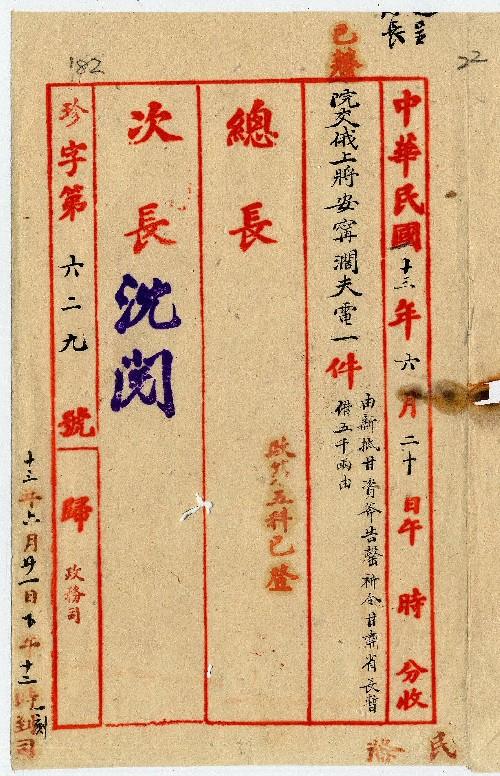 22
182
長
已登
中華民國十三年六月二十日午時分收
院交俄上將安甯濶夫電一件
由新抵甘資斧告罄祈令甘肅省長暫
借五千兩由
政務五科已登
總長
次長
沈閱
珍字第六二九號
歸政務司
十三年六月廿一日下午十二時刻到司